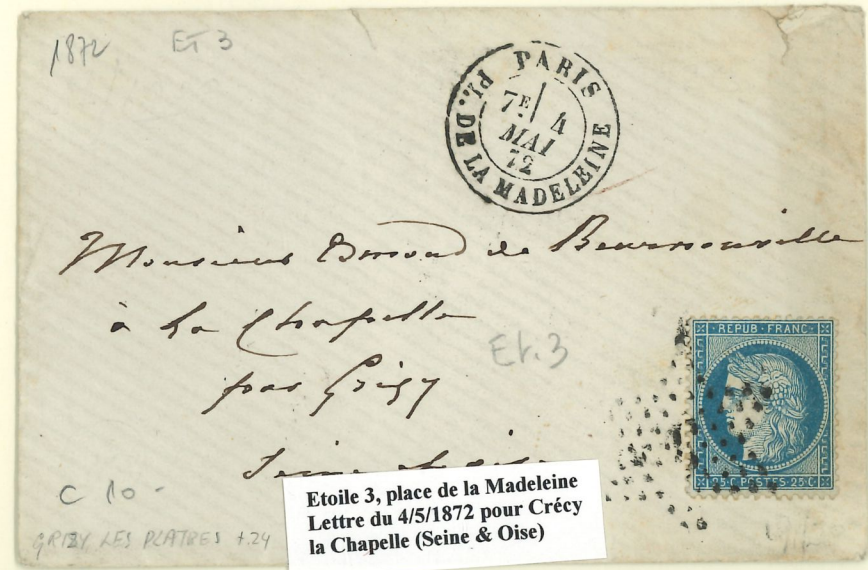 1872 ET 3
PARIS
PL. DE LA MADELEINE
7E 4
MAI
72
Monsieur de Beurnonville
à La Chapelle
par Grisy
Seine et Oise
Et.3
REPUB·FRANC·
25·C·POSTES·25·C·
C 10 -
GRISY LES PLATRES t.24
Etoile 3, place de la Madeleine
Lettre du 4/5/1872 pour Crécy
la Chapelle (Seine & Oise)